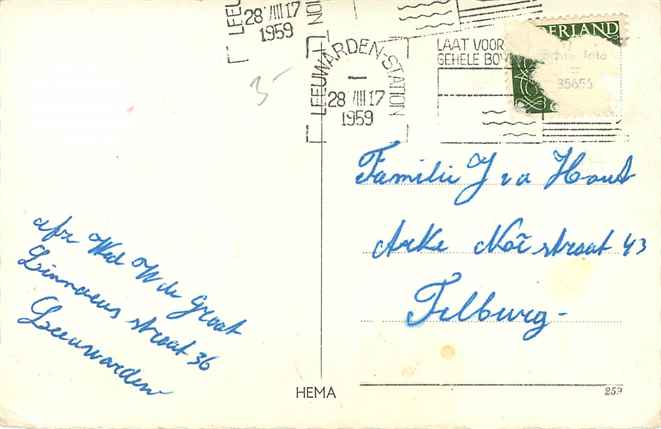 LEEUWARDEN-STATION
28 VIII 17
1959
LEEUWARDEN-STATION
28 VIII 17
1959
LAAT VOOR
GEHELE
NEDERLAND
echte foto
35655
3-
Familie J v d Hout
Arke Noë straat 43
Tilburg-
afz Wed W de Groot
Linnaeus straat 36
Leeuwarden
HEMA
259